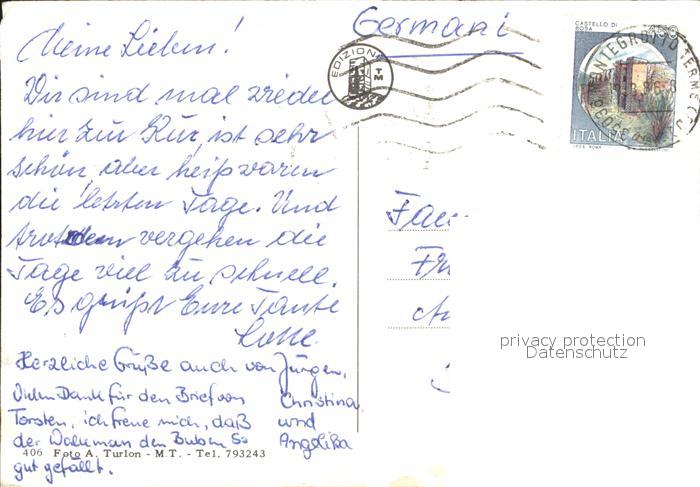 Germani
CASTELLO DI
BOSA
Meine Lieben!
EDIZIONI
TM
Wir sind mal wieder
hier zur Kur, ist sehr
schön, aber heiß waren
die letzten Tage. Und
trotzdem vergehen die
Tage viel zu schnell.
Es grüßt Eure Tante
Lotte.
ITALIA
Fam.
privacy protection
Datenschutz
Herzliche Grüße auch von Jürgen,
Christina
und
Angelika
Vielen Dank für den Brief von
Torsten, ich freue mich, daß
der Walkman den Buben so
gut gefällt.
406 Foto A. Turlon - M.T. - Tel. 793243